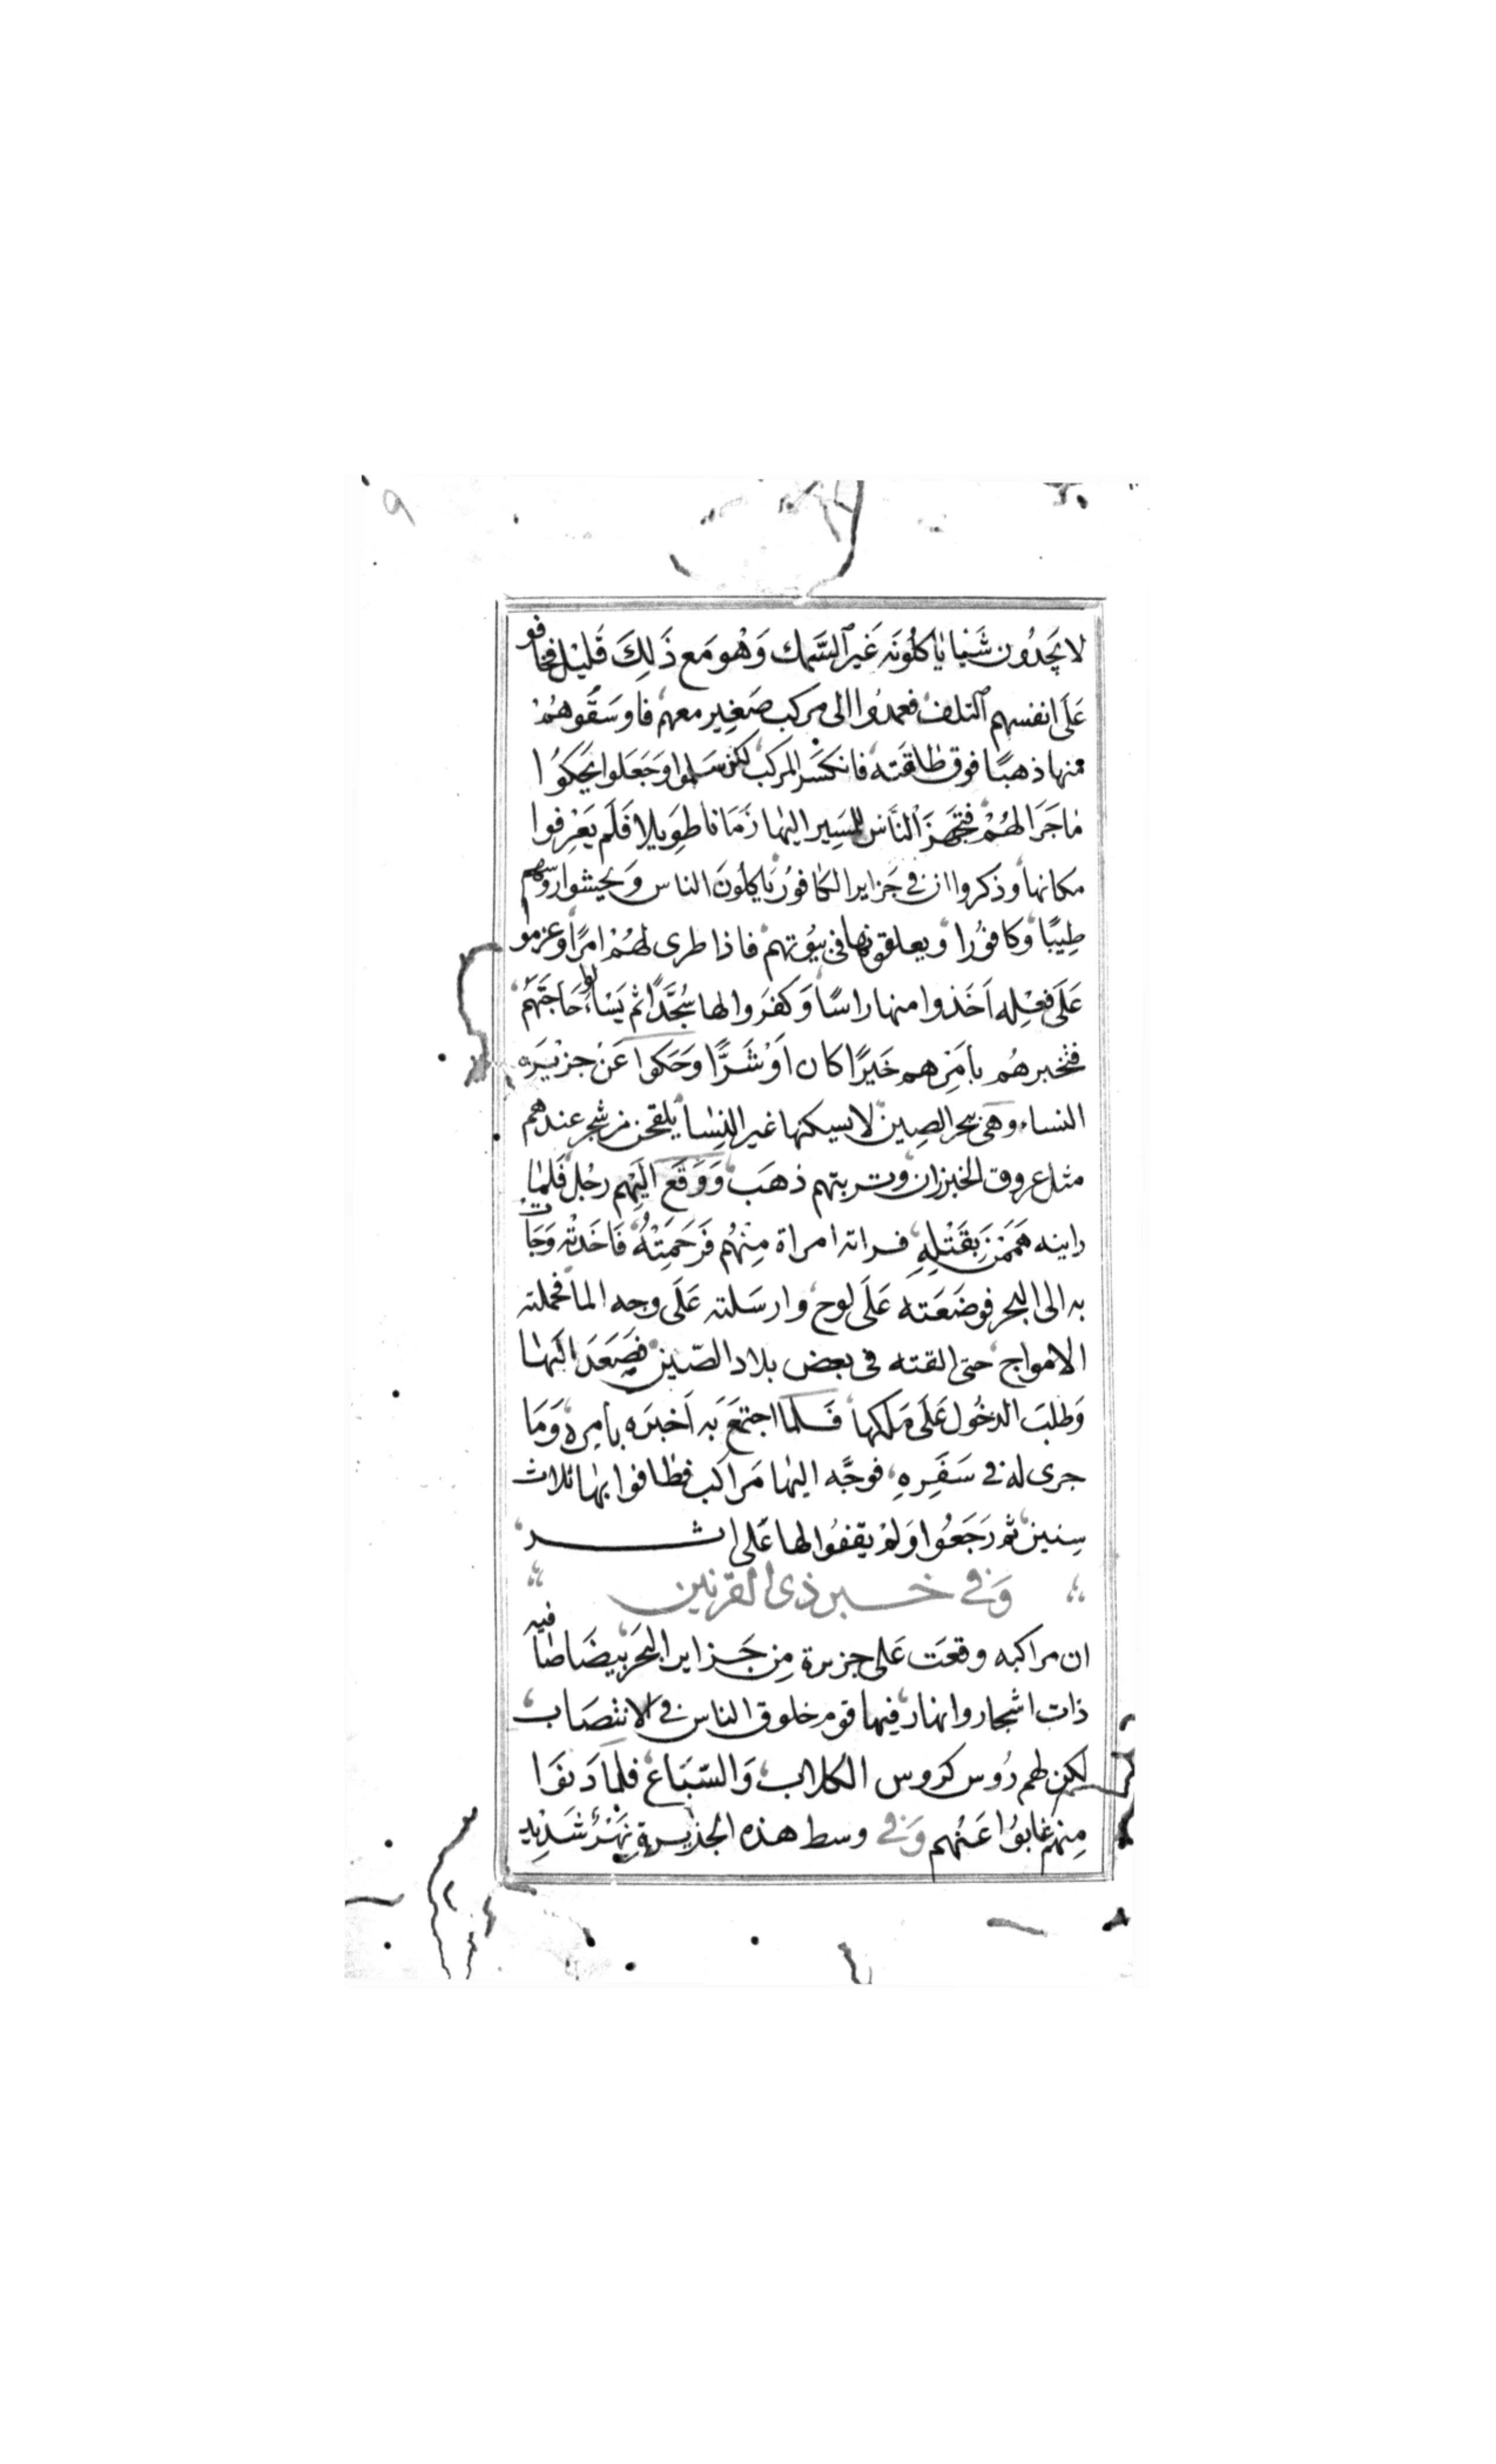 ٩
لا يَجدُون شَيْئا يأكلُونَه غَير السَّمك وَهُو مَع ذَلِكَ قَليْل فخافو
عَلَى انفسهم التلف فعمدُوا الى مركب صَغِير معهم فاوسَقُوهُمْ
منها ذهبًا فوق طاقته فانكسَر المركب لكن سَلموا وجَعَلوا يَحكوُا
مَا جَرَا لهُمْ فتجهزَ النَّاس للسَيِر اليها زَمَانا طِوَيلا فَلَم يَعْرفوا
مكانها وذكروا ان في جَزاير الكافوُر يَأكلُونَ الناس وَيحيشوا روسهم
طِيبًا وكافوُرا ويعلقونها في بيُوتهم فاذا طرى لهُمْ امرًا وعزموا
عَلَى فعْلِه اَخَذوا منها راسًا وَكفرَوا لها سُجَّدًا ثم يَسْاءلوا حَاجتَهُم
فتخبرهُم بامَرِهم خَيَرًا كان اَوْ شَرًّا وَحَكوا عَنْ جزيَره
النساء وهى ببحر الصِين لا يسكنها غير النِسا يلقحن من شجر عندهم
مثل عروق الخيزران وتربتهم ذهَب وَوَقَع الَيْهم رجُل فَلما
راينه هَمَمْنَ بِقَتْلِهِ فراته امراة مِنْهُم فَرَحَمِتْهُ فَاخَذتْه وَجَات
به الى البحر فوضَعَته عَلَى لوح وارسَلته عَلَى وجه الما فحملته
الامواج حتى القته في بعض بلاد الصّين فصَعَدَ اليَها
وَطلبَ الدخُول عَلَى مَلكها فَلما اجتمعَ به اَخبَره بامرِه وَمَا
جرى له في سَفَرِهِ فوجَّه اليها مَراكب فطافوا بها ثلاث
سِنين ثم رَجَعُوا وَلمْ يقفوُا لها عَلى اثر
وَفي خبر ذى القرنين
ان مراكبه وقعَت عَلى جزيرة مِن جَزاير البحَر بيضَا صَافيه
ذات اشجار وانهار فيها قوم خلوق الناس في الانتصَاب
لكن لهم رُوس كروس الكلاب وَالسّبَاع فلما دَنوَا
مِنهم غابوُا عَنهُم وَفي وسط هذه الجزيرة نَهرُ شَدْيد